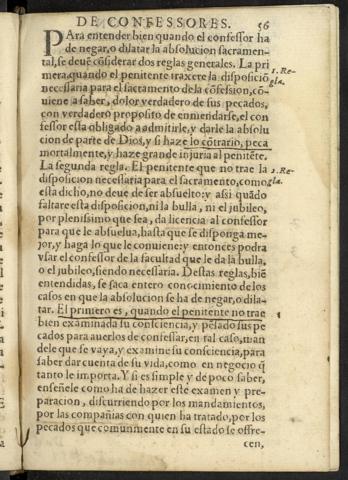 DE CONFESSORES. 56
PAra entender bien quando el confessor ha
de negar, o dilatar la absolucion sacramen-
tal, se deuē cõsiderar dos reglas generales. La pri
mera, quando el penitente traxere la disposiciõ 1. Re-
necessaria para el sacramento de la cõfession, cõ- gla.
uiene a saber, dolor verdadero de sus pecados,
con verdadero proposito de enmendarse, el con
fessor esta obligado a admitirle, y darle la absolu
cion de parte de Dios, y si haze lo cõtrario, peca
mortalmente, y haze grande injuria al penitēte.
La segunda regla. El penitente que no trae la 2. Re-
disposicion necessaria para el sacramento, como gla.
esta dicho, no deue de ser absuelto: y assi quãdo
faltare esta disposicion, ni la bulla, ni el jubileo,
por plenissimo que sea, da licencia al confessor
para que le absuelua, hasta que se disponga me-
jor, y haga lo que le conuiene: y entonces podra
vsar el confessor de la facultad que le da la bulla,
o el jubileo, siendo necessaria. Destas reglas, biē
entendidas, se saca entero conocimiento de los
casos en que la absolucion se ha de negar, o dila-
tar. El primero es, quando el penitente no trae
bien examinada su consciencia, y pesado sus pe
cados para auerlos de confessar, en tal caso, man
dele que se vaya, y examine su consciencia, para
saber dar cuenta de su vida, como en negocio q̃
tanto le importa. Y si es simple y de poco saber,
enseñele como ha de hazer este examen y pre-
paracion, discurriendo por los mandamientos,
por las compañias con quien ha tratado, por los
pecados que comunmente en su estado se offre-
cen,